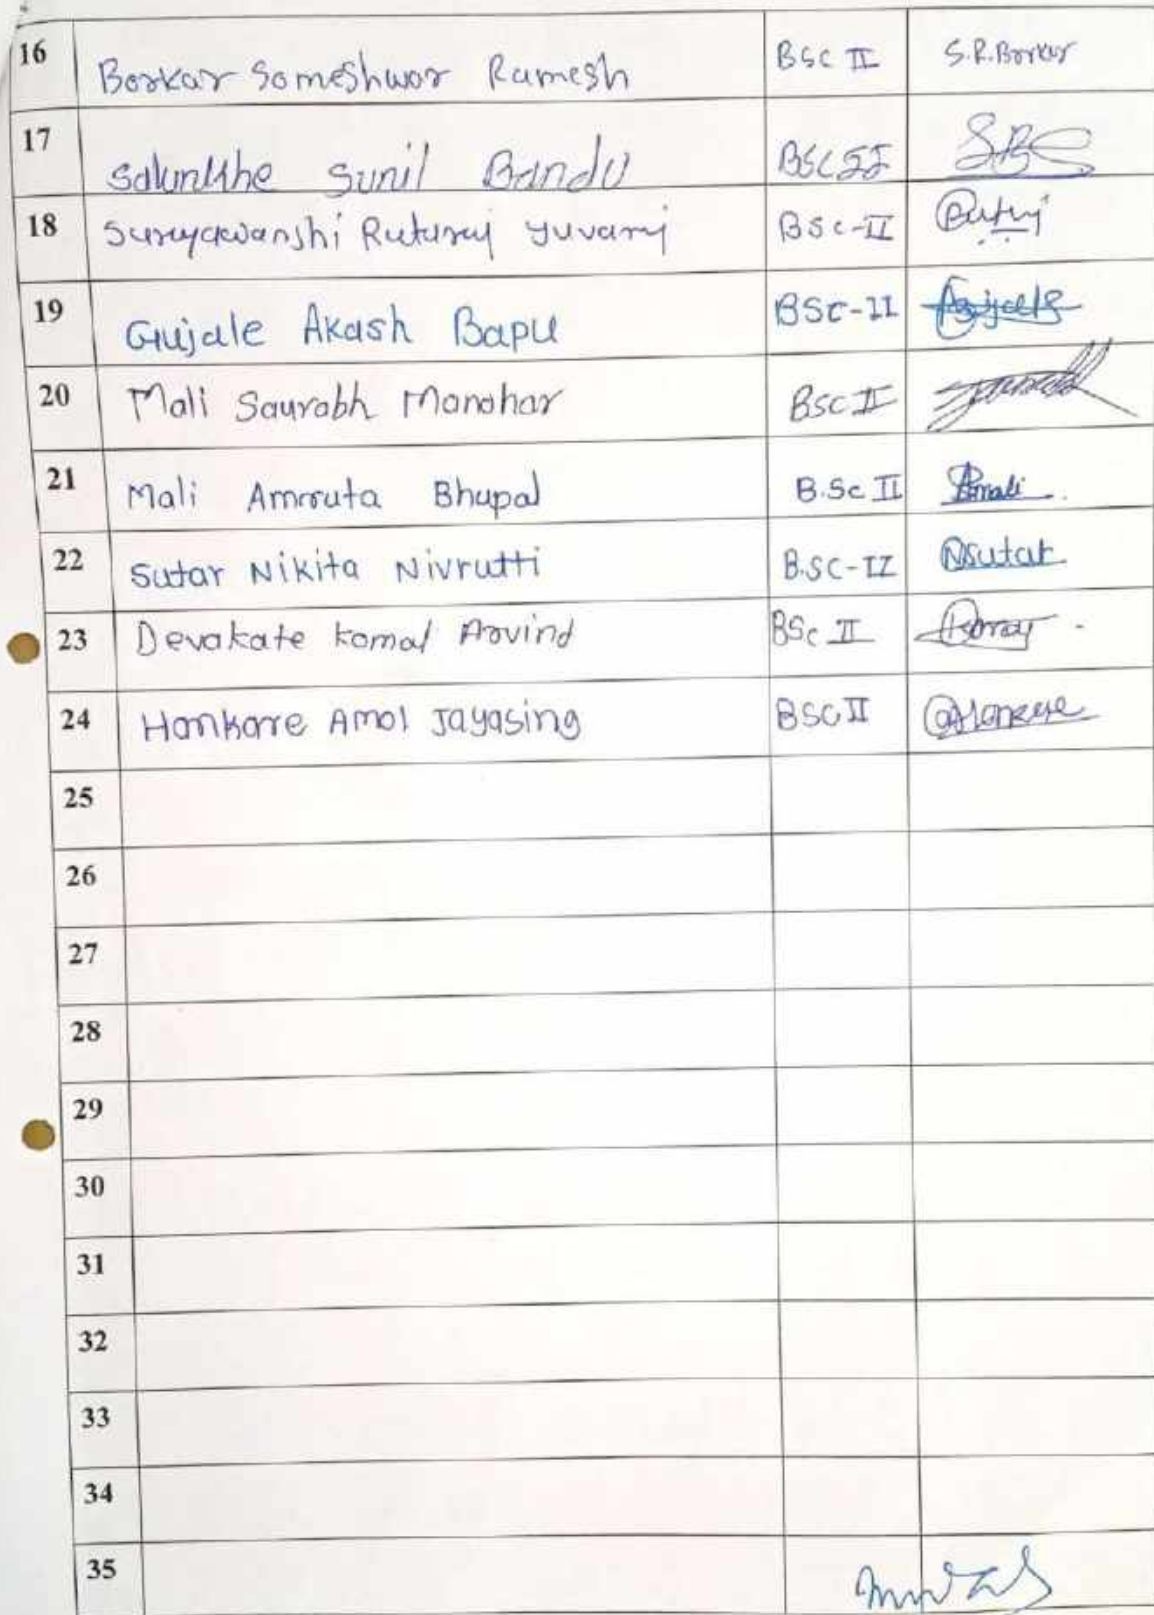 16 Borkar Someshwar Ramesh BSc II S.R.Borkar
17 Salunkhe Sunil Bandu BSC II SBS
18 Suryawanshi Ruturaj yuvaraj BSc-II
19 Gujale Akash Bapu BSC-II Gujale
20 Mali Saurabh Manohar BSC II
21 Mali Amruta Bhupal B.Sc II Amali
22 Sutar Nikita Nivrutti B.SC-II Nsutar
23 Devakate komal Arvind BSc II
24 Hankare Amol Jayasing BSC II
25
26
27
28
29
30
31
32
33
34
35